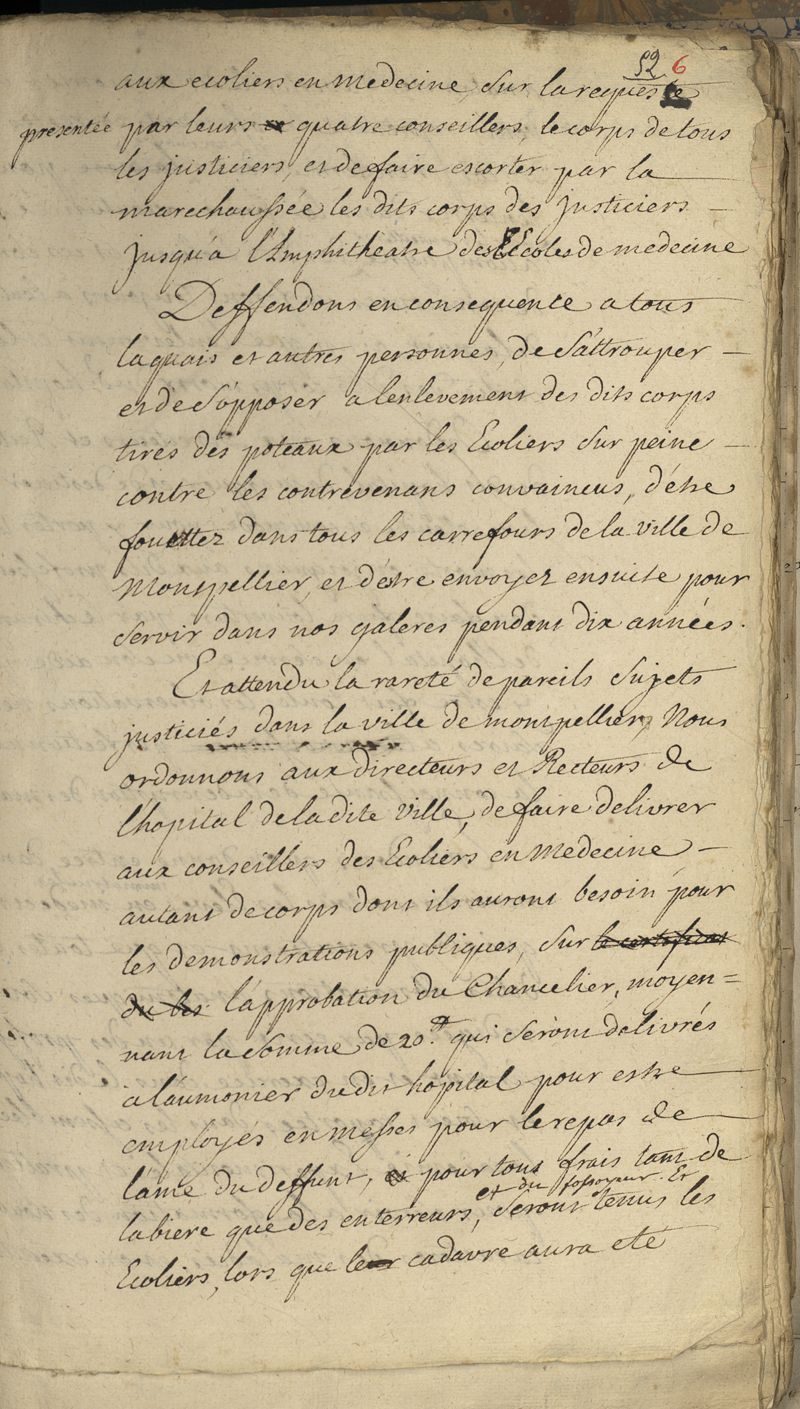 52 6
aux ecoliers en medecine, sur la requeste
presentée par leurs quatre conseillers, le corps de tous
les justiciers, et de faire escorter par la
marechaussée les dits corps des justiciers —
jusqu'a l'Amphitheatre des Ecoles de medecine
Deffendons en consequence a tous
laquais et autres personnes, de s'attrouper —
et de s'opposer a l'enlevement des dits corps
tirés des poteaux par les Ecoliers sur peine —
contre les contrevenans convaincus, d'étre
fouettez dans tous les carrefours de la ville de
Montpellier, et d'estre envoyez ensuite pour
servir dans nos galeres pendant dix années.
Et attendu la rareté de pareils sujets
justiciés dans la ville de montpellier, Nous
ordonnons aux directeurs et Recteurs de
l'hopital de la dite Ville, de faire delivrer
aux conseillers des Ecoliers en Medecine —
autant de corps dont ils auront besoin pour
les demonstrations publiques, sur le certificat
du les l'approbation du Chancelier, moyen=
nant la somme de 20.# qui seront delivrés
a l'aumonier du dit hopital pour estre
employés en messes pour le repos de
l'ame du deffunt, et pour tous frais tant de
la biere que des enterreurs, et du fossoyeur. Et seront tenus les
Ecoliers, lors que leur cadavre aura eté